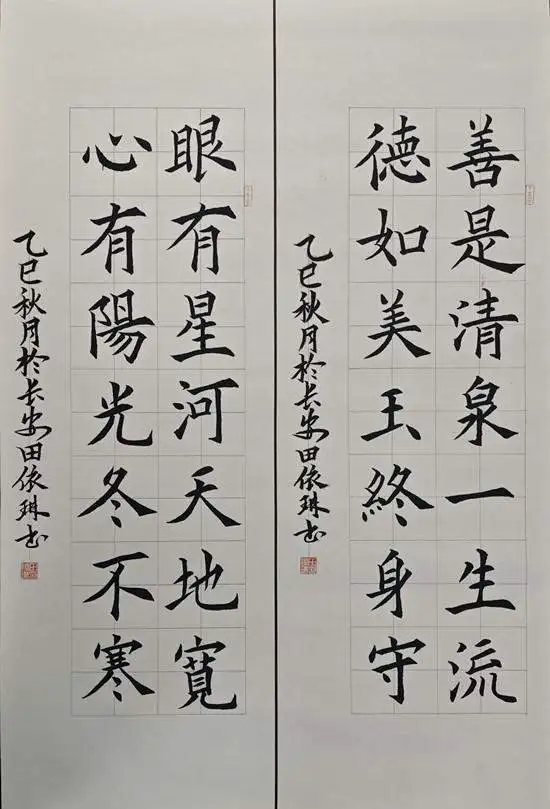 善是清泉一生流
德如美玉終身守
乙巳秋月於长安田依琳书
眼有星河天地寬
心有陽光冬不寒
乙巳秋月於长安田依琳书